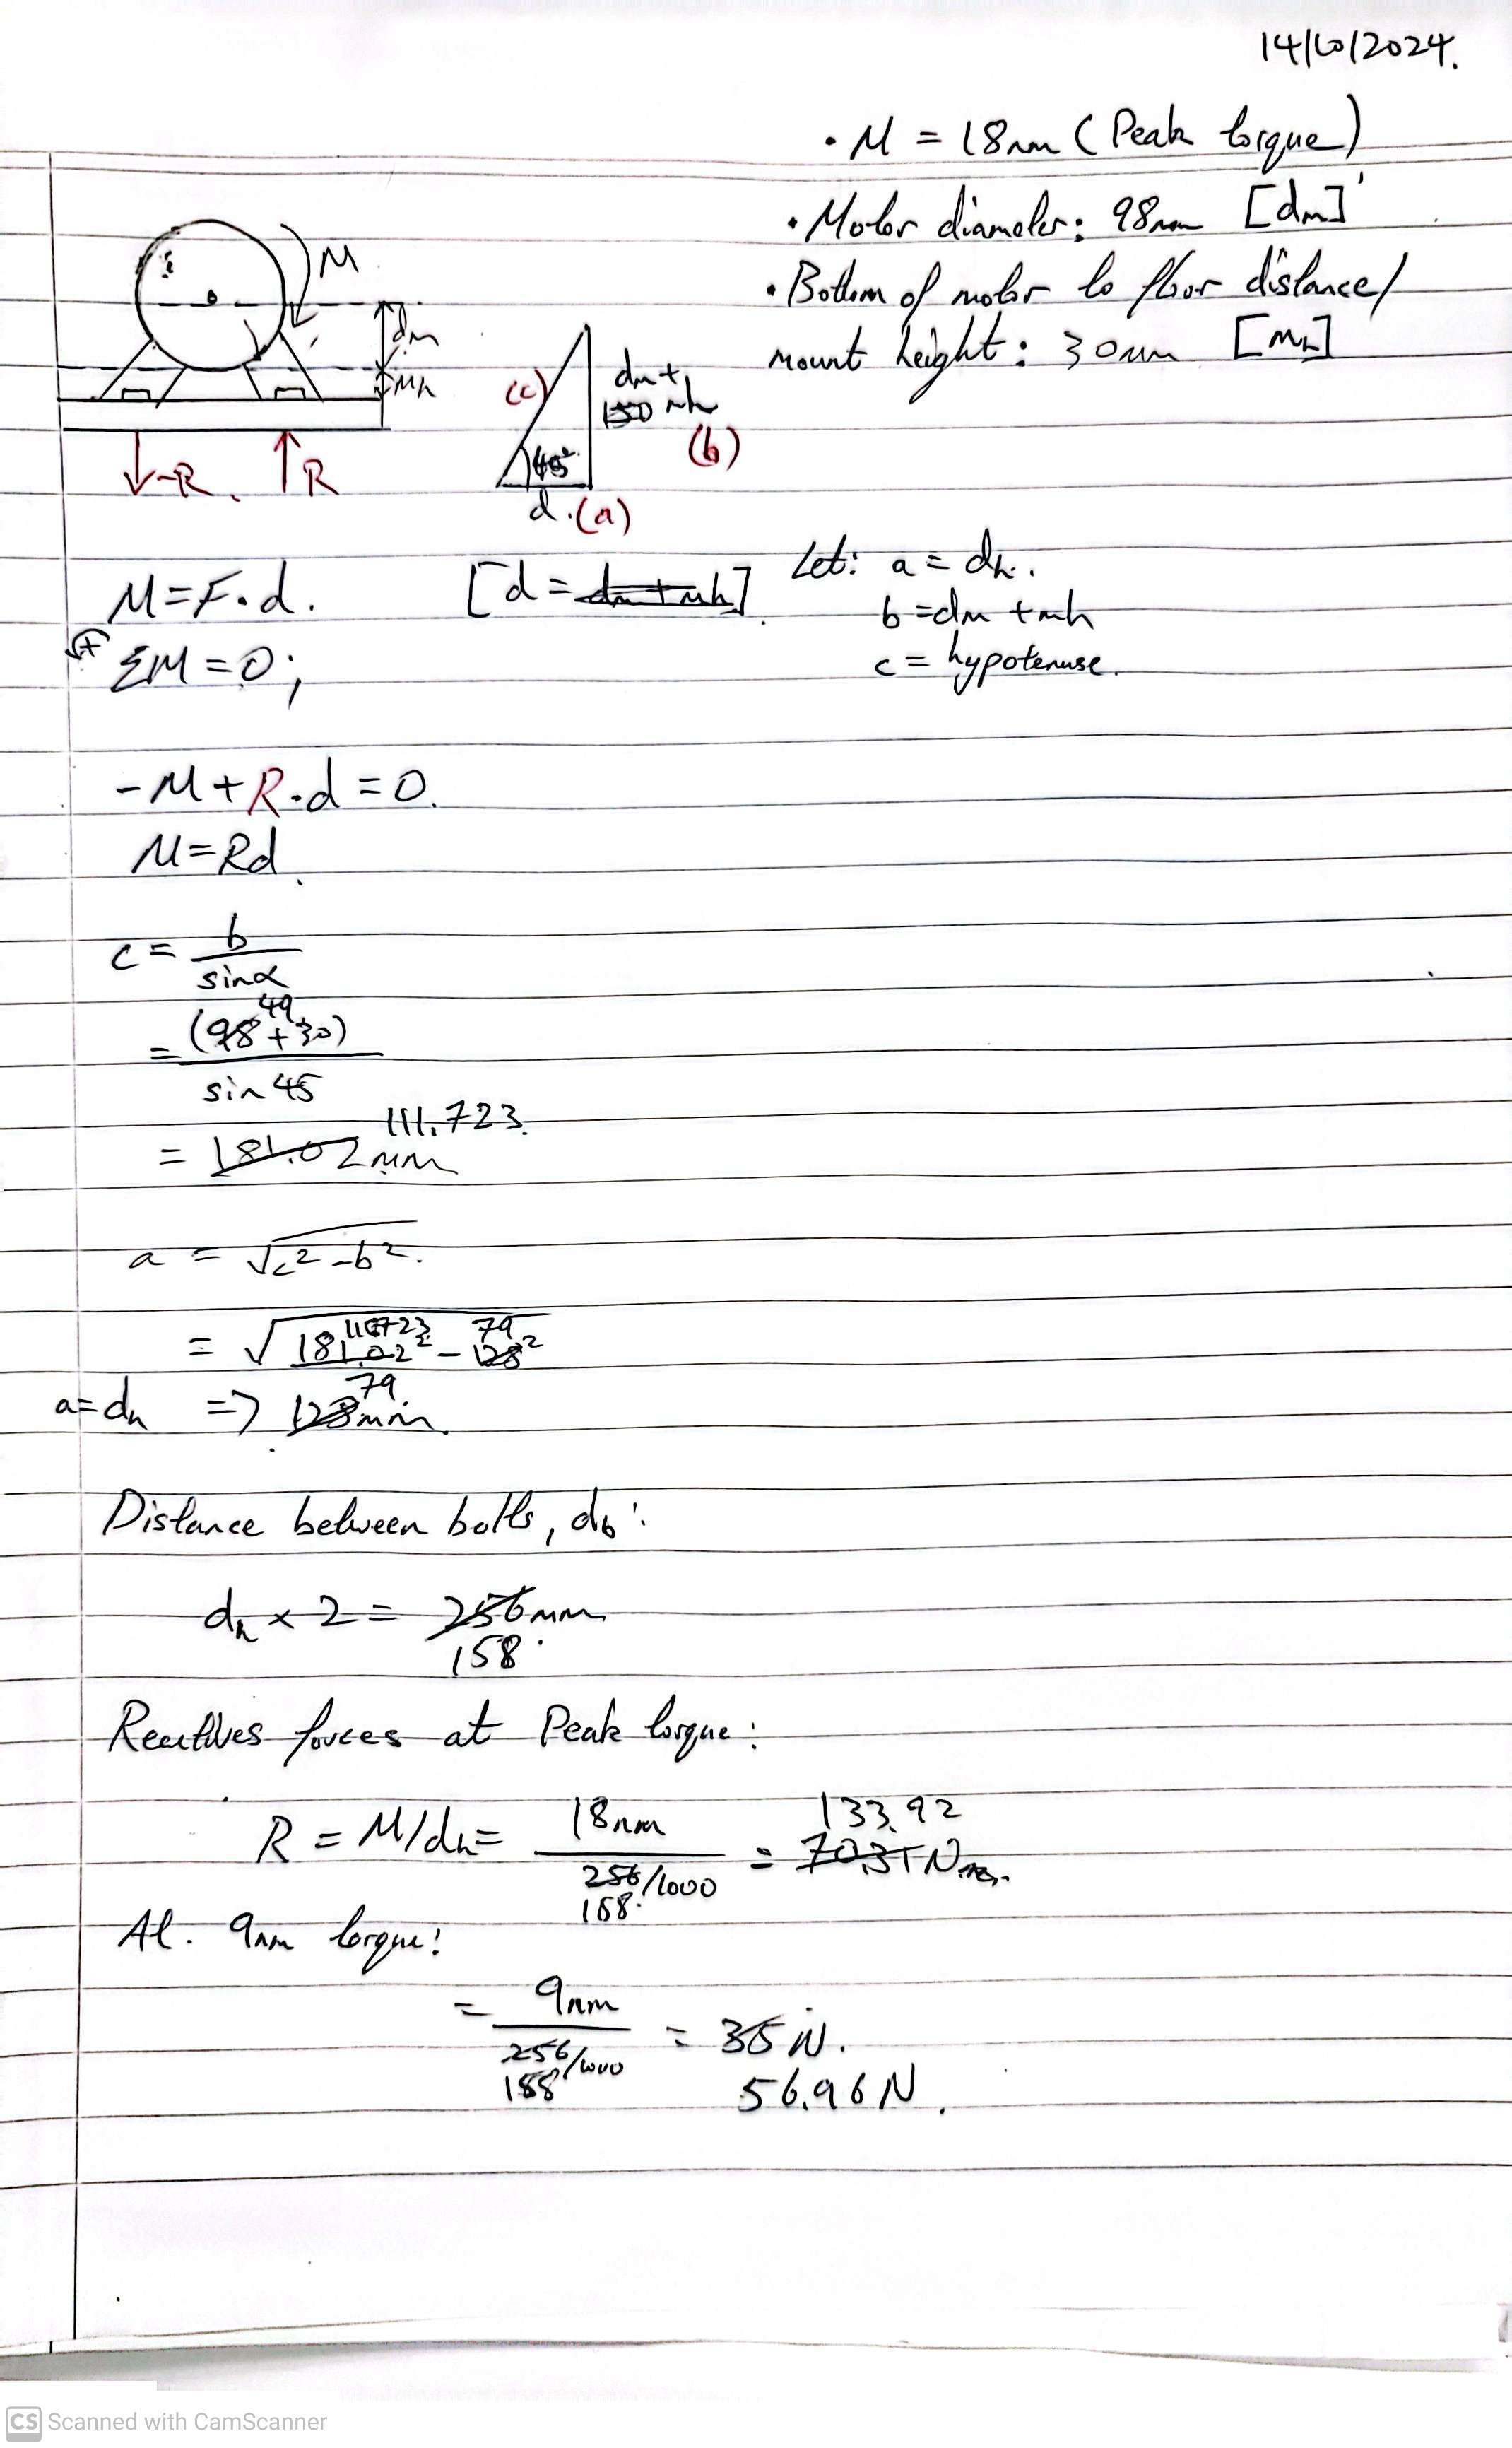 14/10/2024.
• M = 18nm (Peak torque)
• Motor diameter: 98mm [dm]
• Bottom of motor to floor distance/
mount height: 30mm [mh]
M
dm
mh
-R
R
(c)
dm +
mh
(b)
45°
d. (a)
M = F.d.
[d = dm + mh]
Let: a = dh.
b = dm + mh
c = hypotenuse.
ΣM = 0;
-M + R.d = 0.
M = Rd
c = b / sinα
= (98 49 + 30) / sin 45
= 181.02mm 111.723
a = √c² - b².
= √181.02² 111.723 - 128² 79
a = dh => 128mm 79
Distance between bolts, db:
dh x 2 = 256mm
158.
Reactives forces at Peak torque:
R = M/dh = 18nm / 256/1000 = 70.31N 133.92
158.
At. 9nm torque:
= 9nm / 256/1000 = 35N.
158
56.96N.
CS Scanned with CamScanner